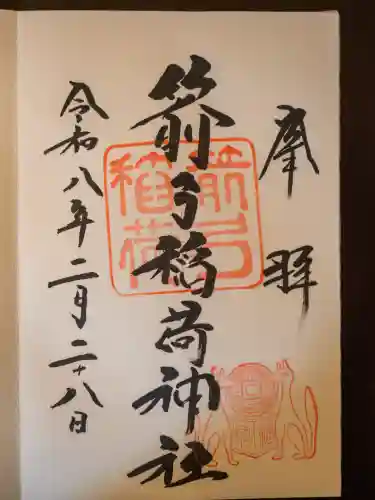 奉拝
箭弓稲荷神社
箭弓稲荷
令和八年二月二十八日